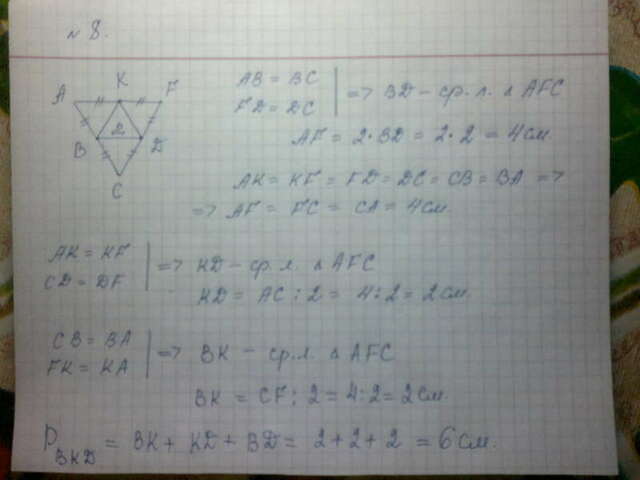 № 8.
K
A F
2
B D
C
AB = BC
FD = DC
=> BD – ср. л. Δ AFC
AF = 2·BD = 2·2 = 4 см
AK = KF = FD = DC = CB = BA =>
=> AF = FC = CA = 4 см.
AK = KF
CD = DF
=> KD – ср. л. Δ AFC
KD = AC : 2 = 4 : 2 = 2 см.
CB = BA
FK = KA
=> BK – ср. л. Δ AFC
BK = CF : 2 = 4 : 2 = 2 см.
P BKD = BK + KD + BD = 2 + 2 + 2 = 6 см.